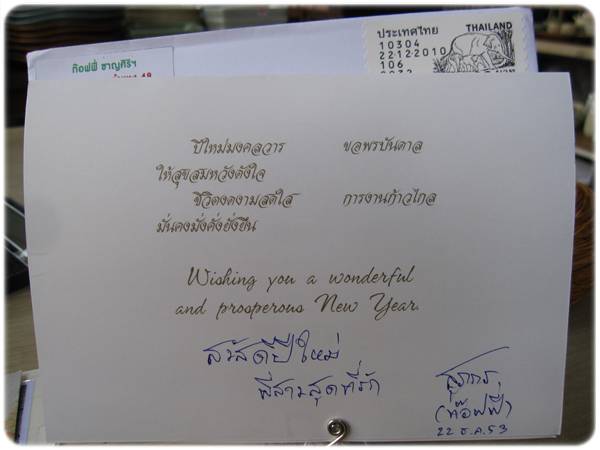 ท๊อฟฟี่ ชาญศิริฯ
ประเทศไทย THAILAND
10304
22122010
106
ปีใหม่มงคลวาร ขอพรบันดาล
ให้สุขสมหวังดังใจ
ชีวิตงดงามสดใส การงานก้าวไกล
มั่นคงมั่งคั่งยั่งยืน
Wishing you a wonderful
and prosperous New Year.
สวัสดีปีใหม่
พี่สามสุดที่รัก
(ท๊อฟฟี่)
22 ธ.ค. 53